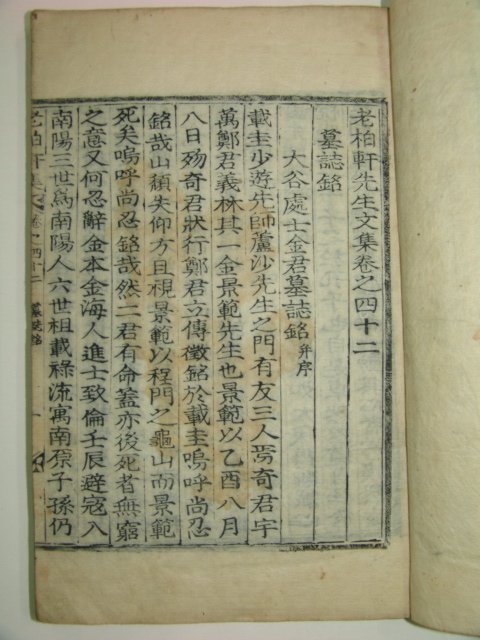 老柏軒先生文集卷之四十二
墓誌銘
大谷處士金君墓誌銘 并序
載圭少遊先師蘆沙先生之門有友三人焉奇君宇
萬鄭君義林其一金景範先生也景範以乙酉八月
八日歿奇君狀行鄭君立傳徵銘於載圭嗚呼尚忍
銘哉山頹失仰方且視景範以程門之龜山而景範
死矣嗚呼尚忍銘哉然二君有命蓋亦後死者無窮
之意又何忍辭金本金海人進士致倫壬辰避寇入
南陽三世爲南陽人六世祖載祿流寓南原子孫仍
老柏軒集 卷之四十二 墓誌銘 一